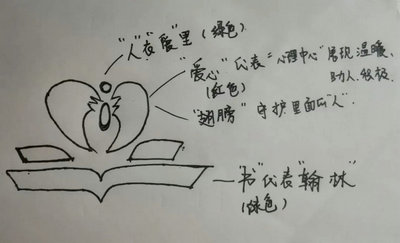 "人"在"爱"里 (绿色)
"爱心"代表"心理中心"展现温暖、
(红色) 助人、积极
"翅膀"守护里面的"人".
"书"代表"翰林"
(绿色)